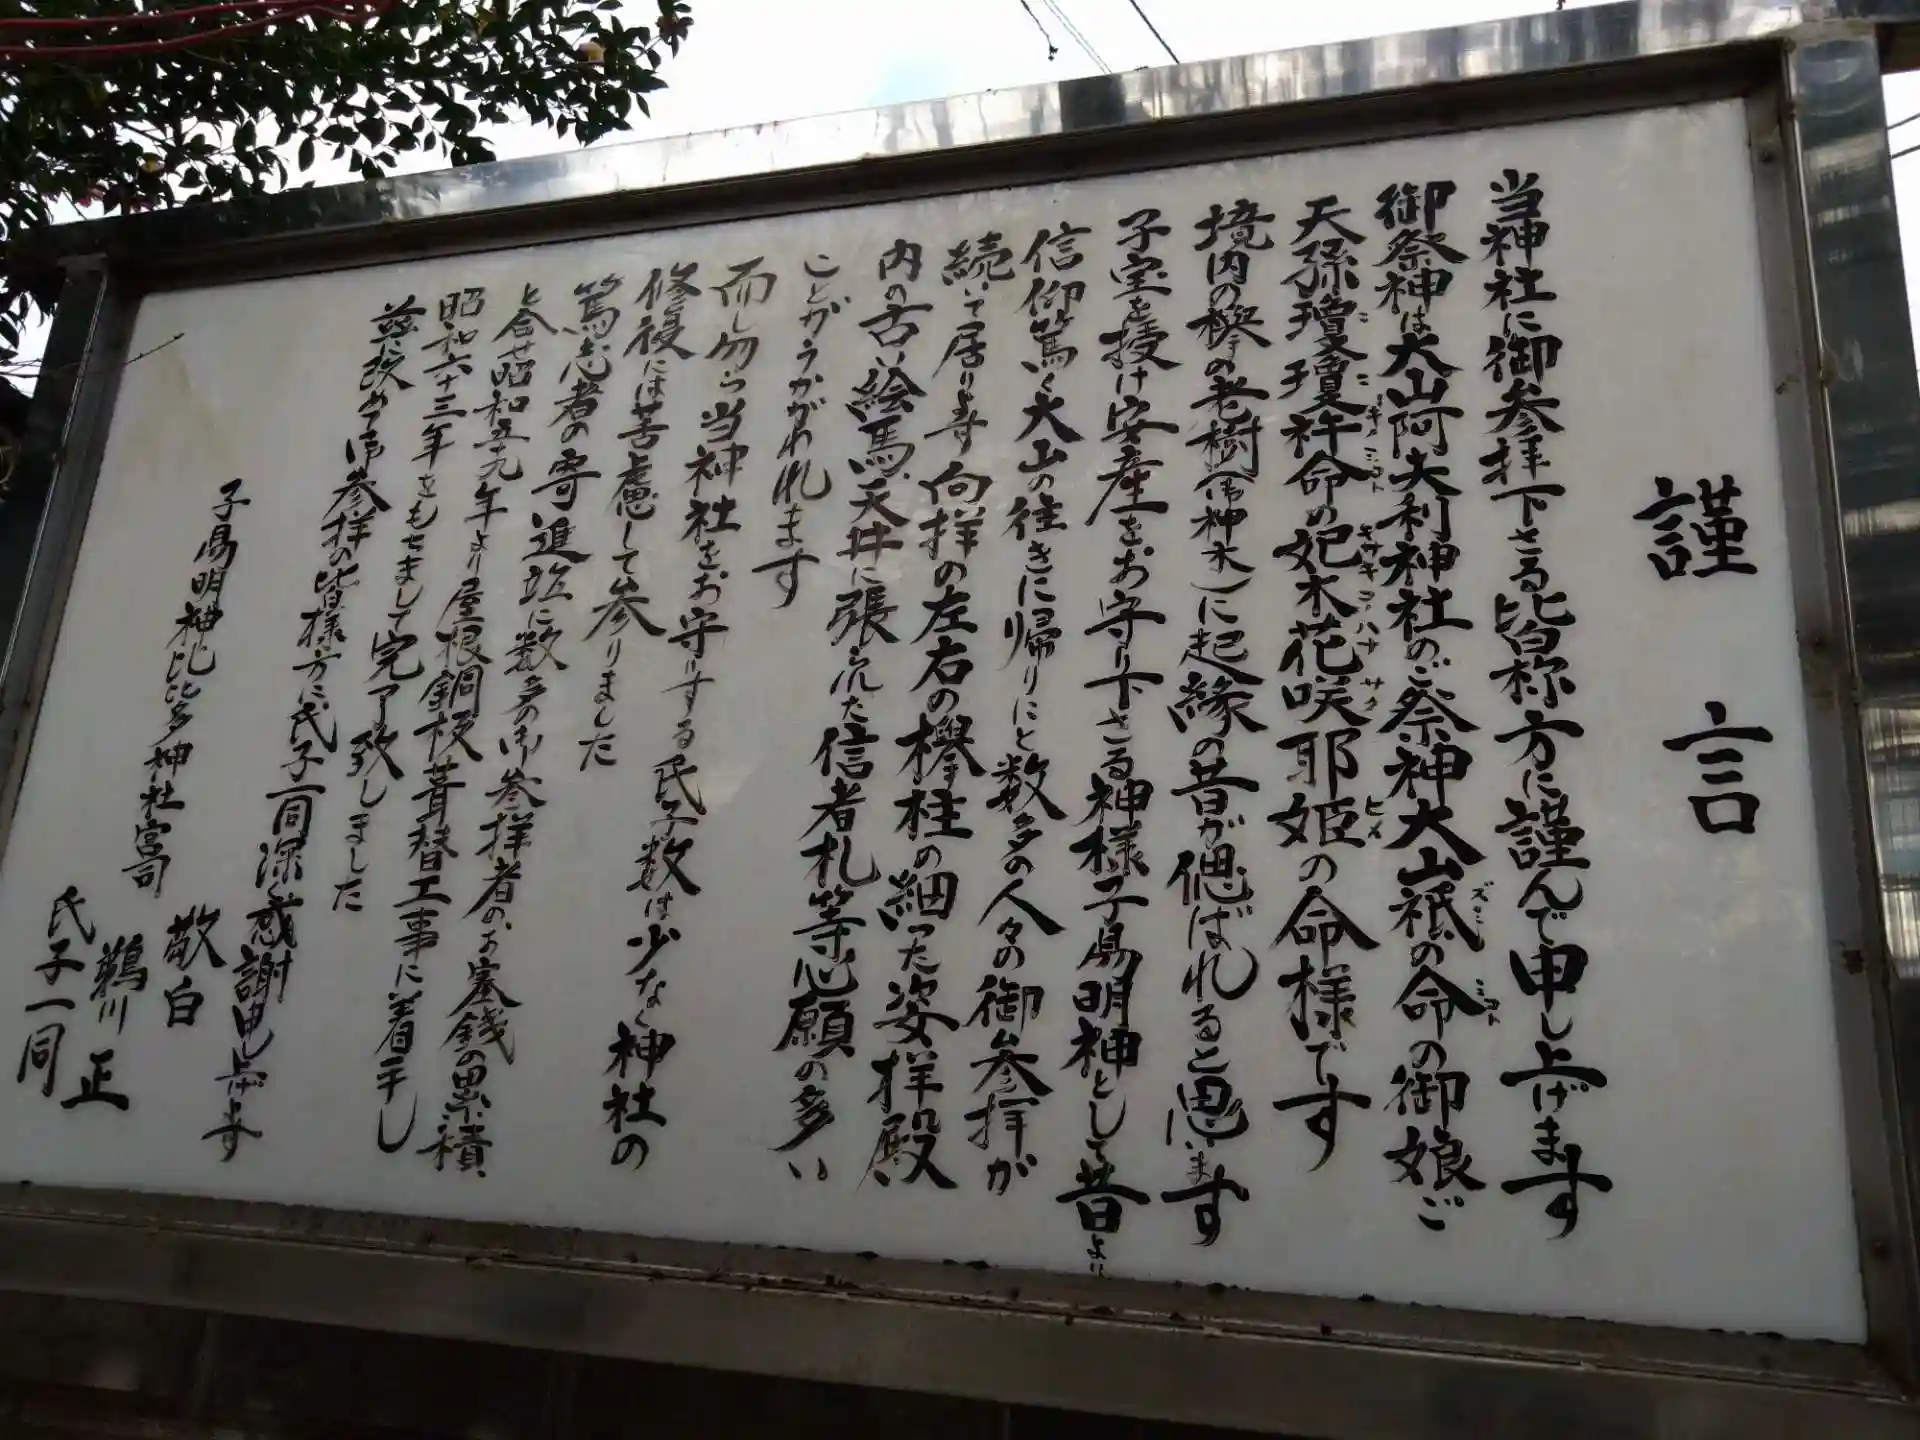 謹言
当神社に御参拝下さる皆様方に謹んで申し上げます
御祭神は大山阿夫利神社のご祭神大山祇の命の御娘ご
天孫瓊瓊杵命の妃木花咲耶姫の命様です
境内の欅の老樹(御神木)に起縁の昔が偲ばれると思います
子宝を授け安産をお守り下さる神様子易明神として昔より
信仰篤く大山の往きに帰りにと数多の人々の御参拝が
続いて居ります 向拝の左右の欅柱の細った姿拝殿
内の古い絵馬、天井に張られた信者札等心願の多い
ことがうかがわれます
而し乍ら当神社をお守りする氏子数は少なく神社の
修復には苦慮して参りました
篤志者の寄進並に数多の御参拝者の、お賽銭の累積、
と合せ昭和五九年より屋根銅板葺替工事に着手し
昭和六十三年をもちまして完了致しました
茲、改めて御参拝の皆様方に氏子一同深く感謝申し上げます
敬白
子易明神比比多神社宮司
鵜川 正
氏子一同